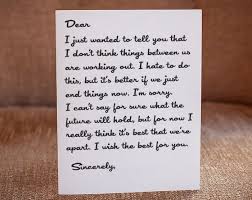 Dear
I just wanted to tell you that
I don't think things between us
are working out. I hate to do
this, but it's better if we just
end things now. I'm sorry.
I can't say for sure what the
future will hold, but for now I
really think it's best that we're
apart. I wish the best for you.
Sincerely,